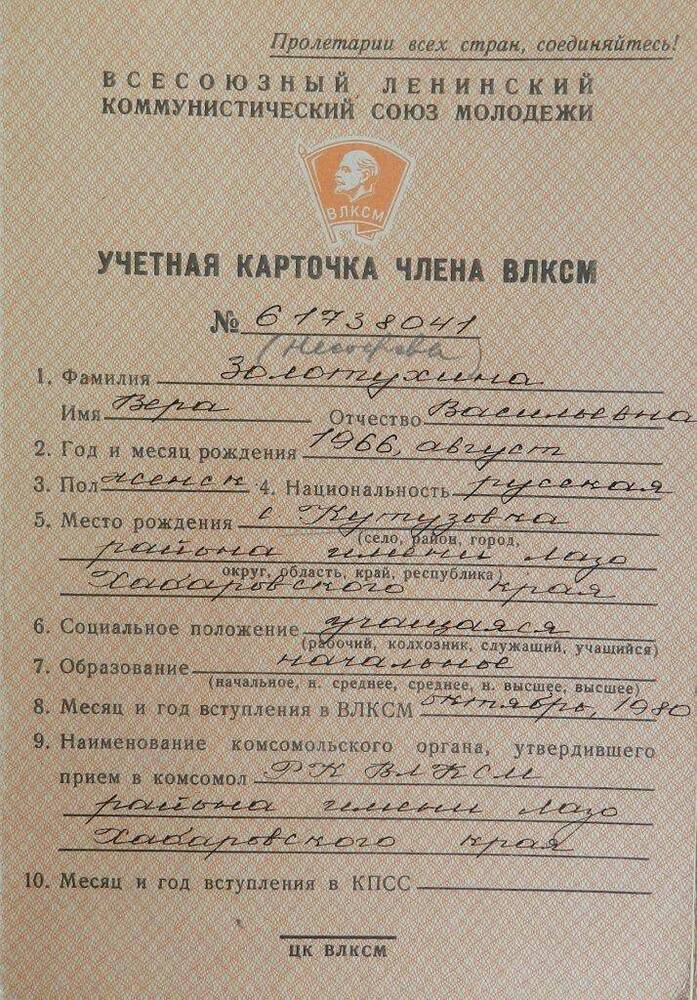 Пролетарии всех стран, соединяйтесь!
ВСЕСОЮЗНЫЙ ЛЕНИНСКИЙ
КОММУНИСТИЧЕСКИЙ СОЮЗ МОЛОДЕЖИ
ВЛКСМ
УЧЕТНАЯ КАРТОЧКА ЧЛЕНА ВЛКСМ
№ 61738041
1. Фамилия Золотухина
Имя Вера Отчество Васильевна
2. Год и месяц рождения 1966, август
3. Пол женск 4. Национальность русская
5. Место рождения с Кутузовка
(село, район, город,
района имени Лазо
округ, область, край, республика)
Хабаровского края
6. Социальное положение учащаяся
(рабочий, колхозник, служащий, учащийся)
7. Образование начальное
(начальное, н. среднее, среднее, н. высшее, высшее)
8. Месяц и год вступления в ВЛКСМ октябрь, 1980
9. Наименование комсомольского органа, утвердившего
прием в комсомол РК ВЛКСМ
района имени Лазо
Хабаровского края
10. Месяц и год вступления в КПСС
ЦК ВЛКСМ